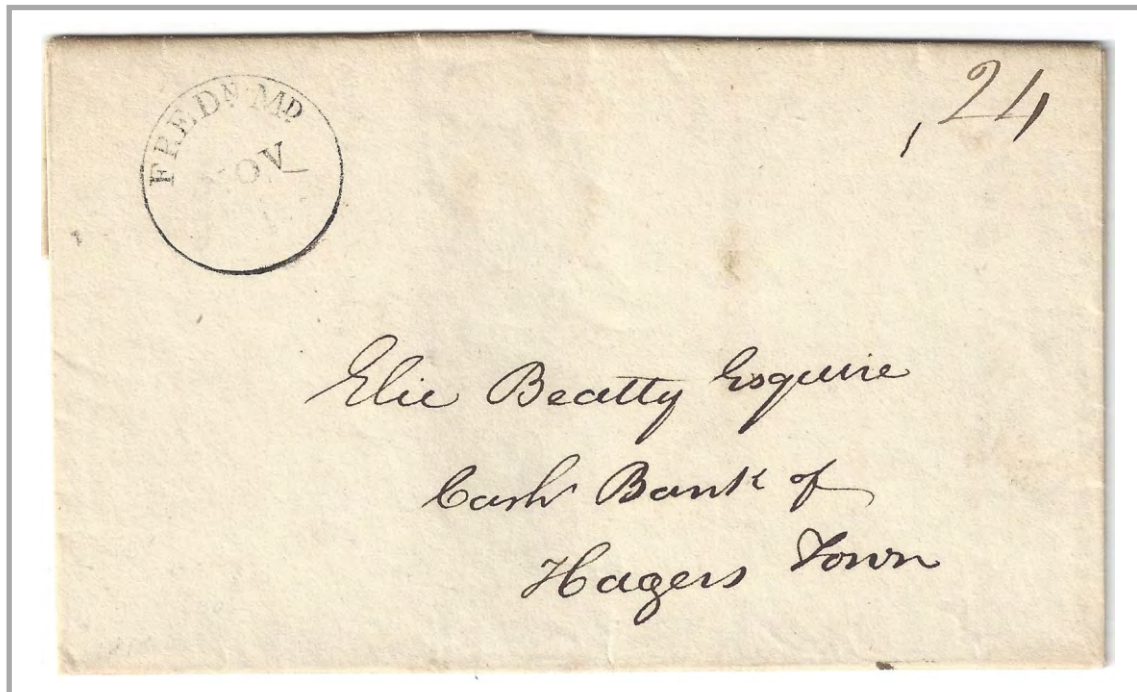 FREDK. MD
NOV
24
Elie Beatty Esquire
Cashr Bank of
Hagers Town